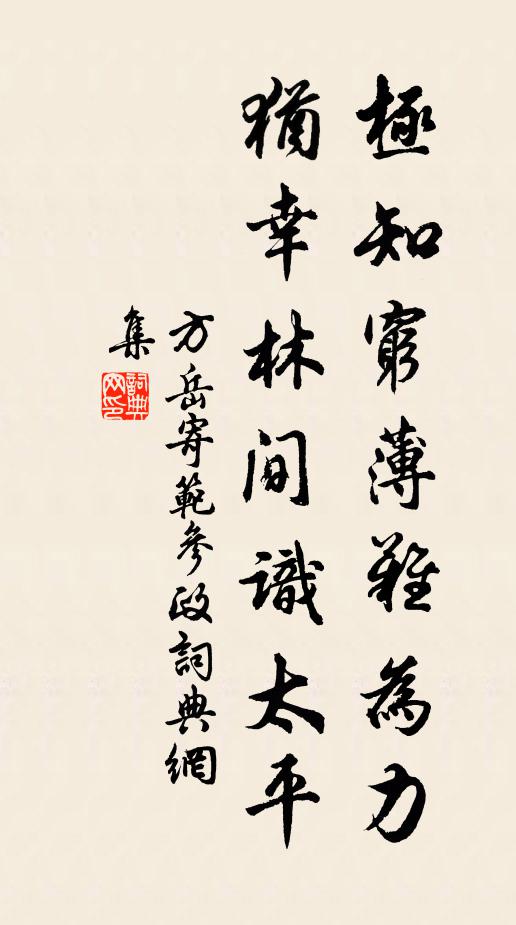 極知窮薄難為力
猶幸林間識太平
方岳寄範參政詞典網
集
詞典网印